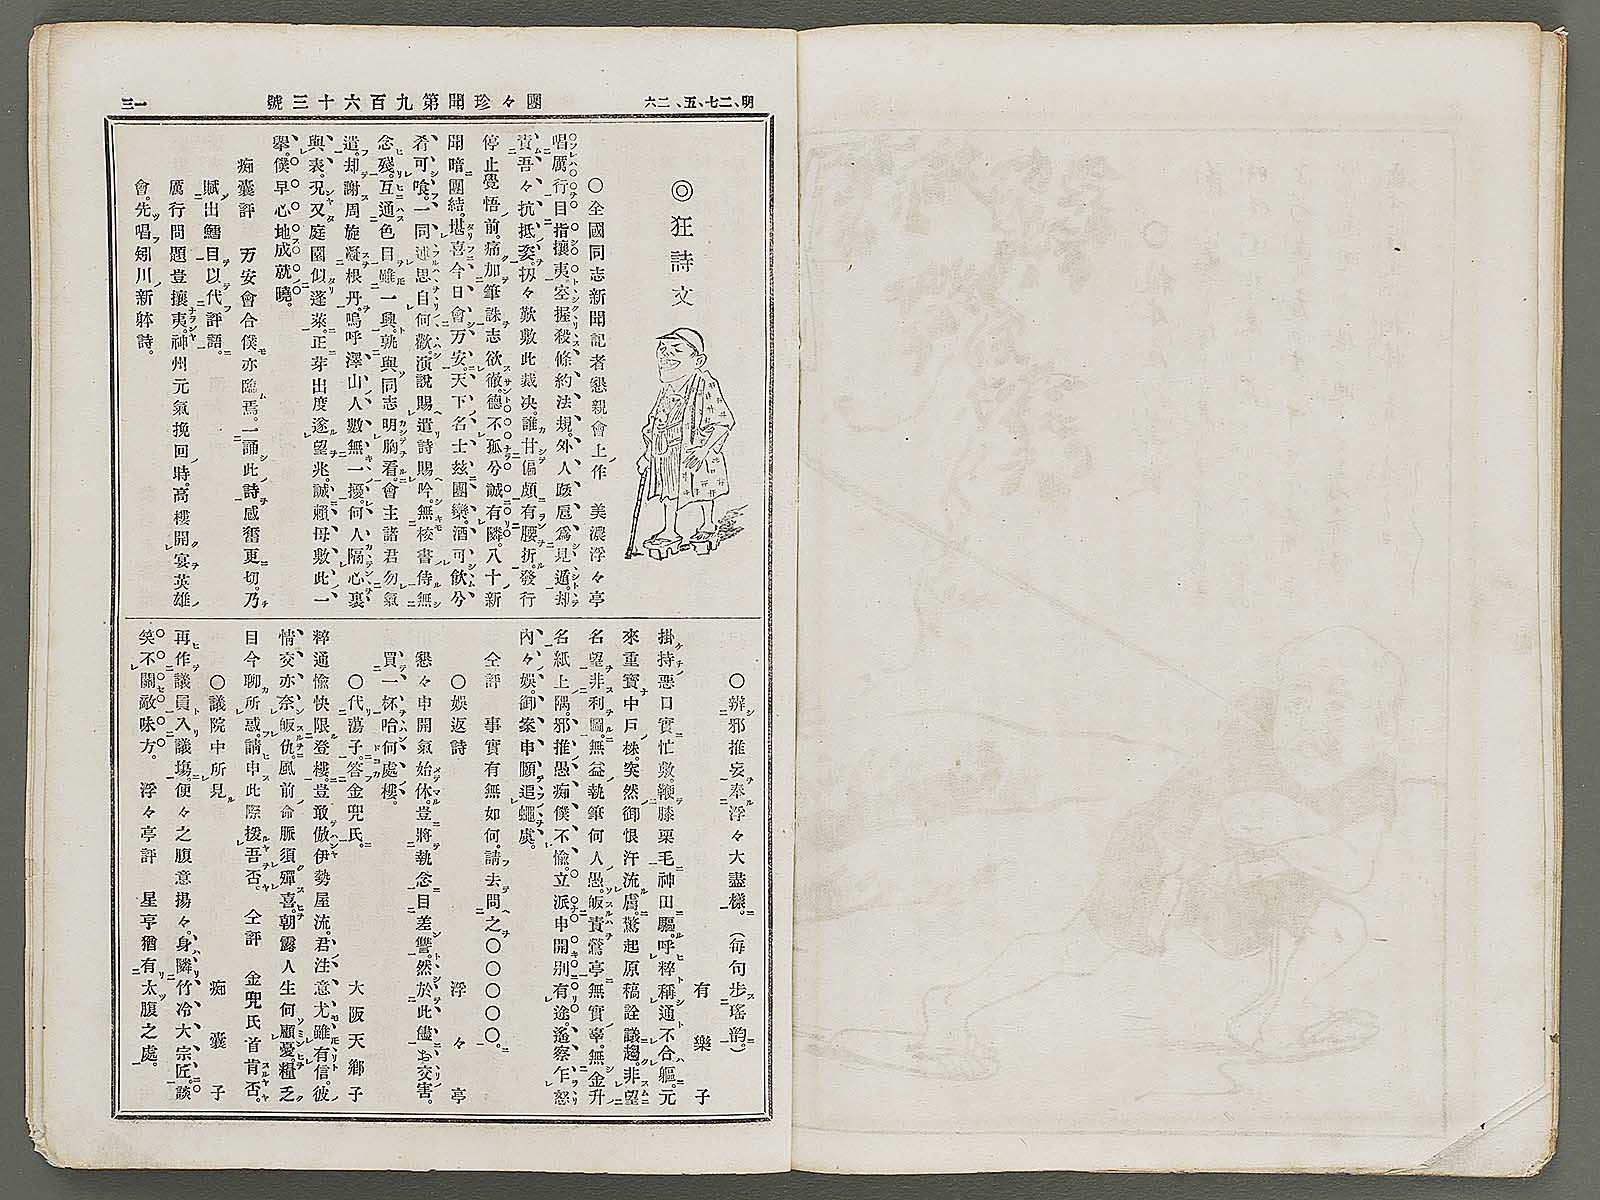 明、二七、五、二六
團々珍聞第九百六十三號
一三
◎狂詩文
○全國同志新聞記者懇親會上作　美濃浮々亭
唱厲行目指攘夷。空握殺條約法規。外人跋扈爲見遁。却
責吾々抗抵姿。扨々歎敷此裁决。誰甘偏頗有腰折。發行
停止覺悟前。痛加筆誅志欲徹。德不孤兮誠有隣。八十新
聞暗團結。堪喜今日會万安。天下名士玆團欒。酒可飮兮
肴可喰。一同述思自何歡。演說賜遣詩賜吟。無校書侍無
念殘。互通色目雖一興。孰與同志明胸看。會主諸君勿氣
遣。却謝周旋凝根丹。嗚呼澤山人數無一擾。何人隔心裏
與表。况又庭園似蓬萊。正芽出度遂望兆。誠賴母敷此一
擧。僕早心地成就曉。
痴囊評　万安會合僕亦臨焉。一誦此詩感奮更切。乃
賦出鱈目以代評語。
厲行問題豈攘夷。神州元氣挽回時。高樓開宴英雄
會。先唱矧川新躰詩。
○辨邪推妄奉浮々大盡樣。（每句步瑤韵。）
有樂子
掛持惡口實忙敷。鞭膝栗毛神田驅。呼粹稱通不合軀。元
來重寶中戶樣。突然御恨汗流膚。驚起原稿詮議趨。非望
名望非利圖。無益執筆何人愚。皈責鶯亭無實辜。無金升
名紙上隅。邪推愚痴僕不愉。立派申開別有途。遙察乍怒
內々娛。御案申願追蠅處。
仝評　事實有無如何。請去問之○○○○○。
○娛返詩　浮々亭
懇々申開氣始休。豈將執念目差讐。然於此儘お交害。
買一杯咍何處樓。
○代蕩子。答金兜氏。　大阪天鄕子
粹通愉快限登樓。豈敢倣伊勢屋流。君注意尤雖有信。彼
情交亦奈皈仇。風前命脈須殫喜。朝露人生何顧憂。糧乏
目今聊所惑。請申此際援吾否。　仝評　金兜氏首肯否。
○議院中所見　痴囊子
再作議員入議塲。便々之腹意揚々。身隣竹冷大宗匠。談
笑不關敵味方。　浮々亭評　星亨猶有太腹之處。